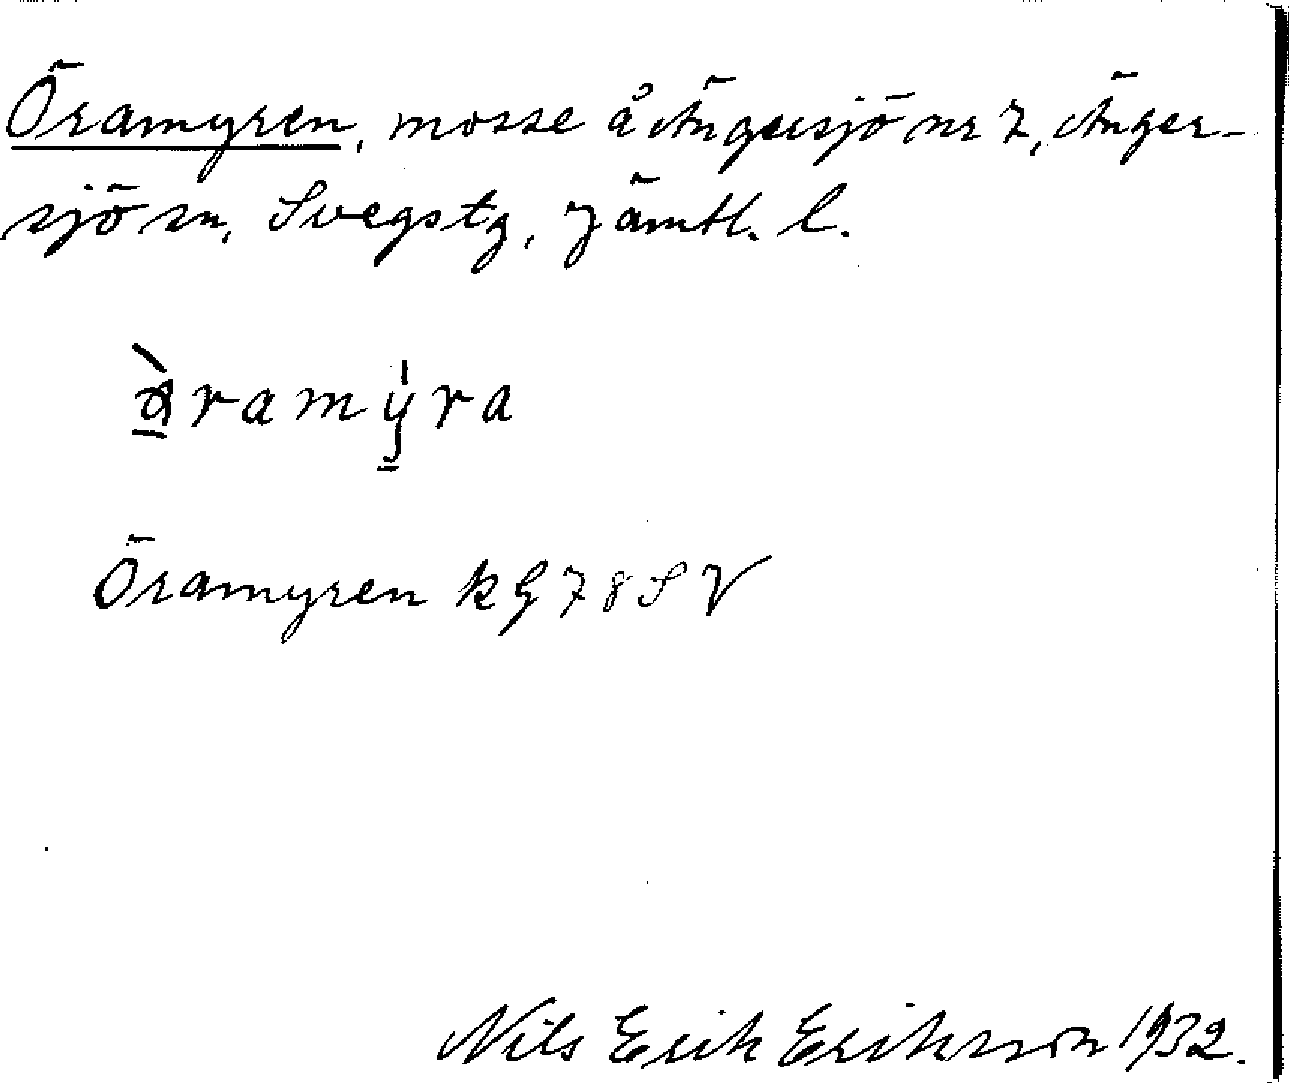 Öramyren, mosse å Ängersjö nr 7, Änger-
sjö sn, Svegs tg, Jämtl. l.
ramy̠ra
Öramyren k G 78 S V
Nils Erik Eriksson 1932.